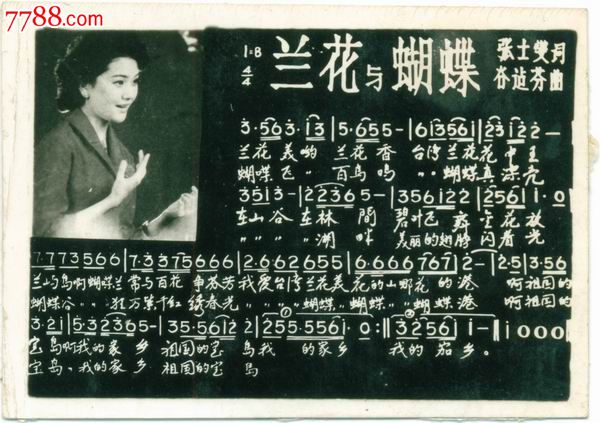 7788.com
1=B 4/4 兰花与蝴蝶 张士燮词
谷达芬曲
3·5 6 3· i 3 | 5·6 5 5 - | 6 i 3 5 6 i | 2 3 i 2 2 -
兰花美哟 兰花香 台湾兰花花中王
蝴蝶飞 〃 百鸟鸣 〃 〃 蝴蝶真漂亮
3 5 i 3 - | 2 2 3 6 5 - | 3 5 6 i 2 2 | 2 5 6 i | i · 0
在山谷 在林間 碧叶 花放
〃 〃 〃 〃 湖畔 美丽的翅膀闪着光
7·7 7 3 5 6 6 | 7·3 3 7 5 6 6 6 | 2·6 6 2 6 5 5 | 6·6 6 6 7 6 7 | 2 - | 2·5 | 3·5 6
兰屿鸟啊蝴蝶兰常与百花争芬芳我爱台湾兰花美花的山哪花的港 啊祖国的
蝴蝶谷〃〃狂万紫千红绣春光〃〃〃〃蝴蝶〃蝴蝶〃〃蝴蝶港 啊祖国的
3·2 i | 5·3 2 3 6 5 - | 3 5·5 6 i 2 | 2 5 5·5 5 6 i · 0 :‖ 3 2 5 6 | i - ‖ i 0 0 0 ‖
宝岛啊我的家乡 祖国的宝岛我 的家乡 我的茄乡。
宝岛〃我的家乡 祖国的宝 岛